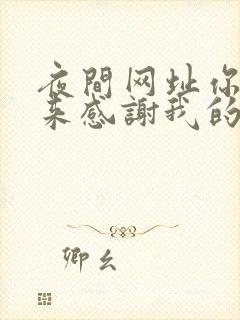 夜間网址你
来感謝我的
卿幺